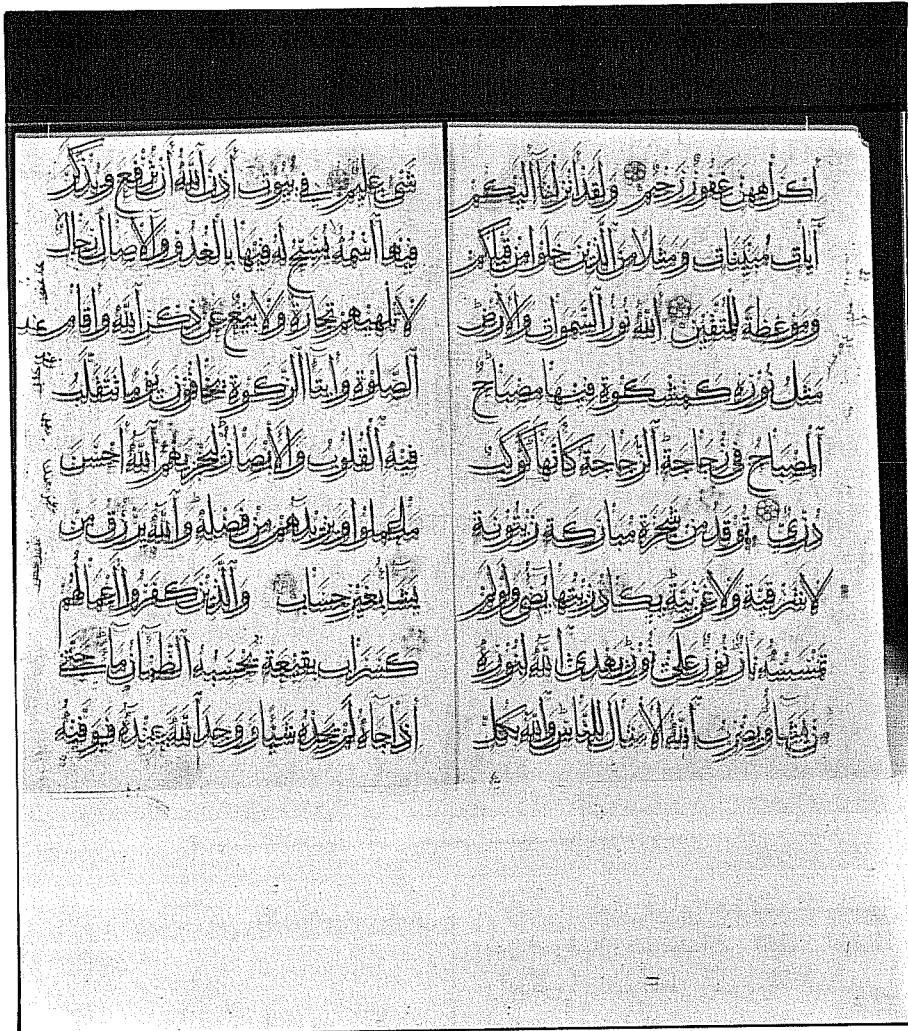 إكراههن غفور رحيم ولقد أنزلنا إليكم
آيات مبينات ومثلا من الذين خلوا من قبلكم
وموعظة للمتقين الله نور السموات والارض
مثل نوره كمشكوة فيها مصباح
المصباح في زجاجة الزجاجة كأنها كوكب
دري توقد من شجرة مباركة زيتونة
لا شرقية ولا غربية يكاد زيتها يضئ ولو لم
تمسسه نار نور على نور يهدي الله لنوره
من يشا ويضرب الله الامثال للناس والله بكل
شئ عليم في بيوت أذن الله أن ترفع ويذكر
فيها اسمه يسبح له فيها بالغدو والاصال رجال
لا تلهيهم تجارة ولا بيع عن ذكر الله وأقام
الصلوة وايتا الزكوة يخافون يوما تتقلب
فيه القلوب والابصار ليجزيهم الله أحسن
ما عملوا ويزيدهم من فضله والله يرزق من
يشا بغير حساب والذين كفروا أعمالهم
كسراب بقيعة يحسبه الظمآن ما حتى
إذا جاءه لم يجده شيئا ووجد الله عنده فوفيه